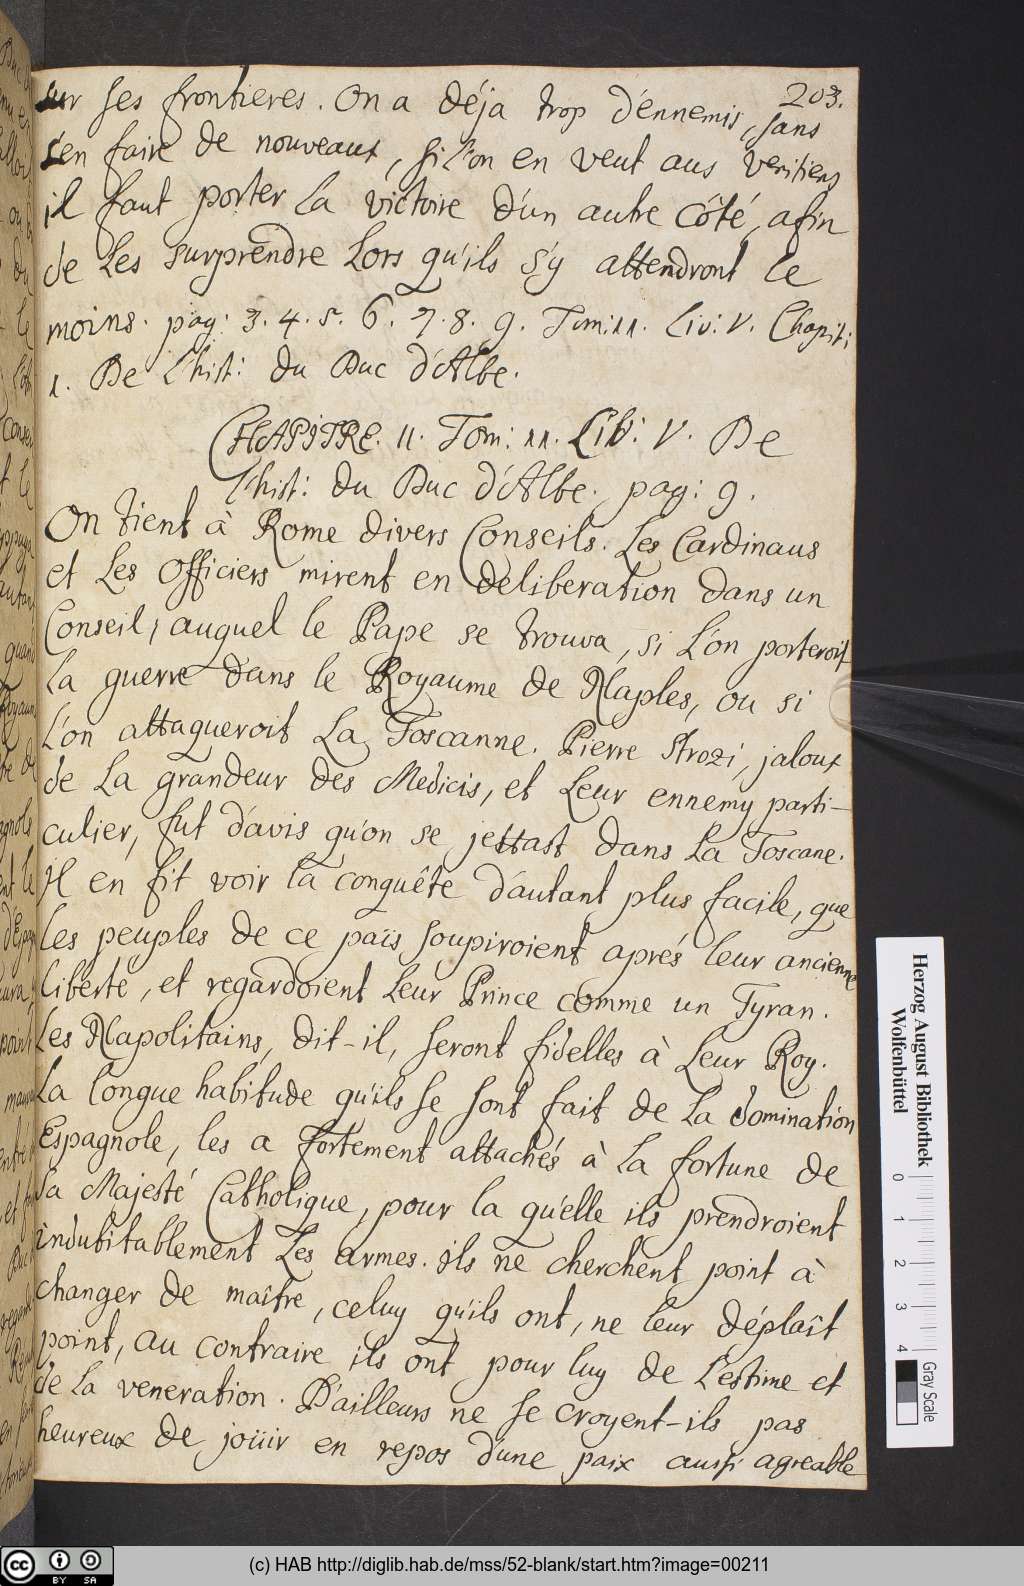 203.
sur ses frontieres. On a déja trop d'ennemis, sans
s'en faire de nouveaux, si l'on en veut aus veritiens
il faut porter la victoire d'un autre côté, afin
de les surprendre lors qu'ils s'y attendront le
moins. pag: 3. 4. 5. 6. 7. 8. 9. Tom: 11. Liv: V. Chapit:
1. De l'hist: du Duc d'Albe.
CHAPITRE. II. Tom: 11. Lib: V. De
l'hist: du Duc d'Albe. pag: 9.
On tient à Rome divers Conseils. Les Cardinaus
et les Officiers mirent en deliberation dans un
Conseil, auquel le Pape se trouva, si l'on porteroit
la guerre dans le Royaume de Naples, ou si
l'on attaqueroit la Toscanne. Pierre Strozi, jaloux
de la grandeur des Medicis, et leur ennemy parti-
culier, fut d'avis qu'on se jettast dans la Toscane.
Il en fit voir la conquête d'autant plus facile, que
les peuples de ce païs soupiroient aprés leur ancienne
liberte, et regardoient leur Prince comme un Tyran.
Les Napolitains, dit-il, seront fidelles à leur Roy.
La longue habitude qu'ils se sont fait de la domination
Espagnole, les a fortement attachés à la fortune de
sa Majesté Catholique, pour la qu'elle ils prendroient
indubitablement les armes. ils ne cherchent point à
changer de maître, celuy qu'ils ont, ne leur déplaît
point, au contraire ils ont pour luy de l'estime et
de la veneration. D'ailleurs ne se croyent-ils pas
heureux de joüir en repos d'une paix aussi agreable
Herzog August Bibliothek
Wolfenbüttel
0 1 2 3 4
Gray Scale
cc BY SA
(c) HAB http://diglib.hab.de/mss/52-blank/start.htm?image=00211